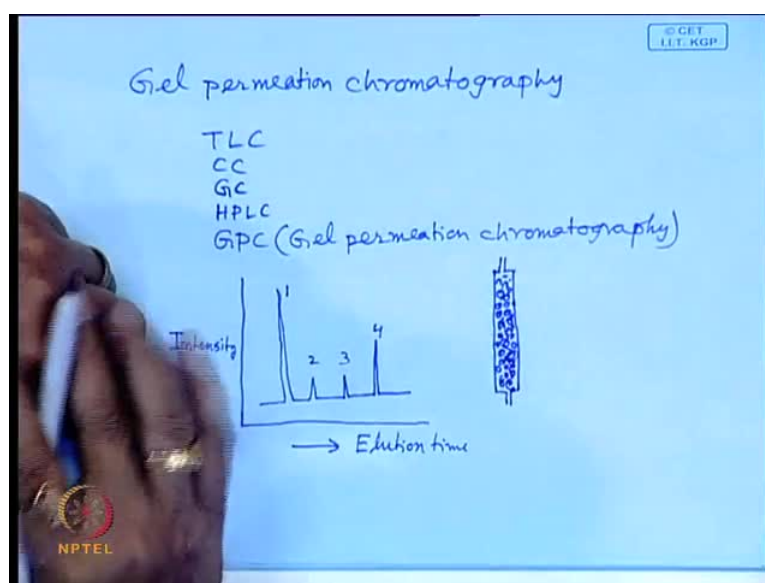 © CET
I.I.T. KGP
Gel permeation chromatography
TLC
CC
GC
HPLC
GPC (Gel permeation chromatography)
1
4
Intensity
2 3
→ Elution time
NPTEL